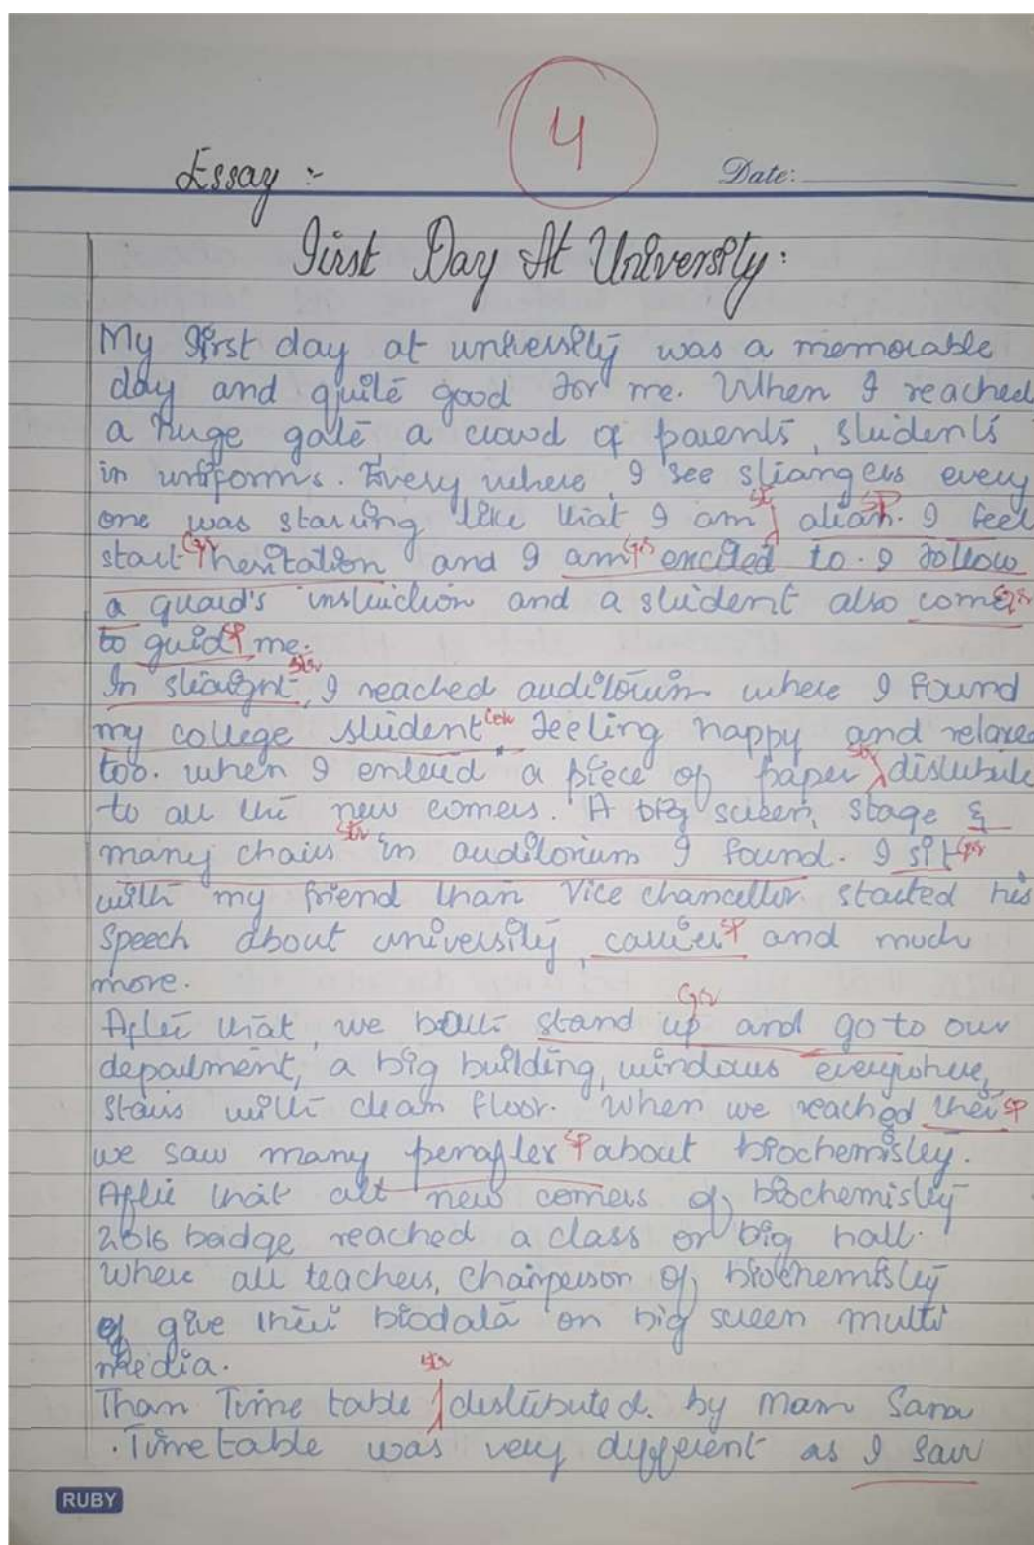 4
Essay :-
Date:
First Day At University:
My first day at university was a memorable
day and quite good for me. When I reached
a huge gate a crowd of parents, students
in uniforms. Every where, I see strangers every
one was staring like that I am str alian. sp I feel
start Gr hesitation and I am Gr excited to. I follow
a guard's instruction and a student also come Gr
to guid sp me.
In straight str, I reached auditorium where I found
my college student, feeling happy and relaxed
too. when I entered a piece of paper str distribute
to all the new comers. A big screen, stage &
many chairs str in auditorium I found. I sit Gr
with my friend than Vice chancellor started his
speech about university, carrier sp and much
more.
Gr
After that, we both stand up and go to our
department, a big building, windows everywhere,
stairs with clean floor. When we reached their sp
we saw many penafler sp about biochemistry.
After that all new comers of biochemistry
2016 badge reached a class or big hall.
Where all teachers, chairperson of biochemistry
give their biodata on big screen multi
media.
str
Than Time table distributed. by mam Sana
. Time table was very different as I saw
RUBY